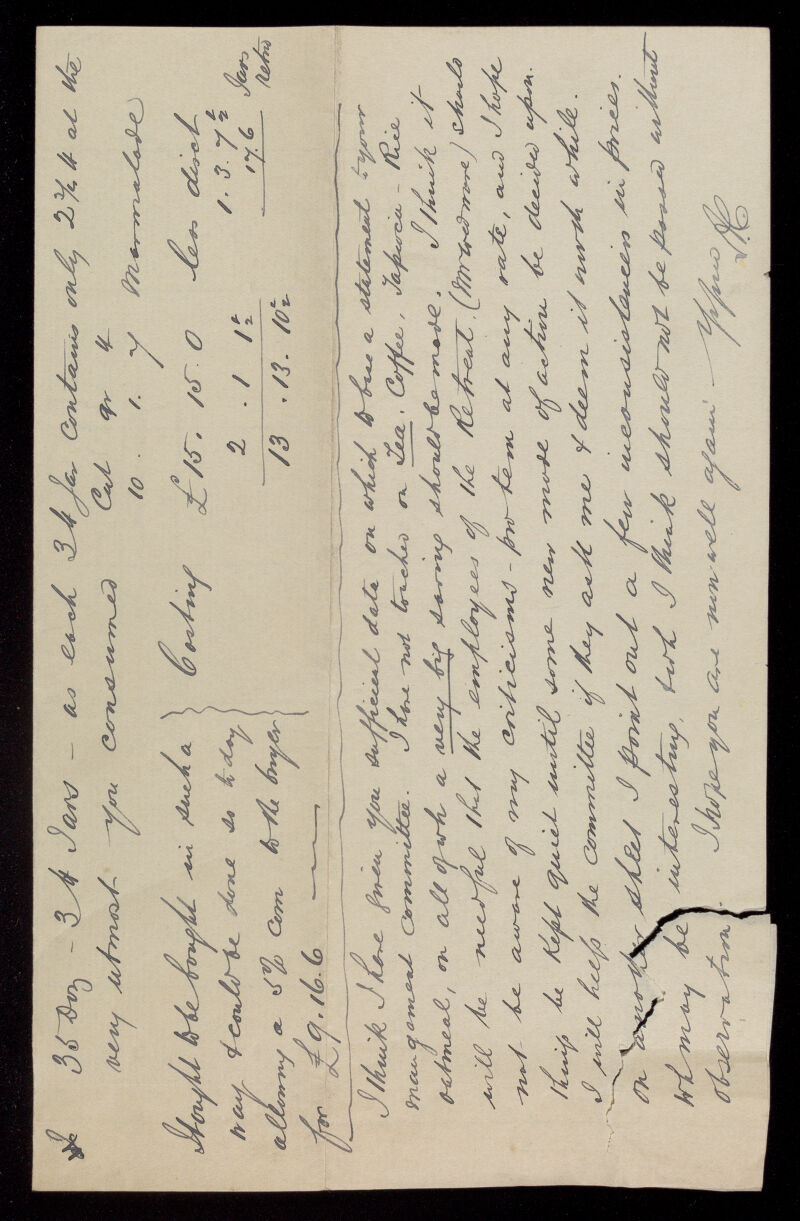 35 Doz – 3 lb Jars – as each 3 lb Jar contains only 2 1/2 lb at the
very utmost you consumed Cwt qr lb
10 . 1 . 7 Marmalade
It ought to be bought in such a
way & could be done so to day
allowing a 5% com to the buyer
for £9.16.6
Costing £15. 15. 0 less disct
2 . 1 1 1/2 1. 3. 7 1/2
17. 6 Jars retnd
13 . 13. 10 1/2
I think I have given you sufficient data on which to base a statement to your
management committee. I have not touched on Tea, Coffee, Tapioca – Rice
oatmeal, on all of wh a very big saving should be made. I think it
will be needful that the employees of the Retreat (Mr Wedmore) should
not be aware of my criticisms – pro tem at any rate, and I hope
things be kept quiet until some new mode of action be decided upon.
I will help the committee if they ask me & deem it worth while.
on another sheet I point out a few inconsistencies in prices.
wh may be interesting, & wh I think should not be passed without
observation. I hope you are now well again –